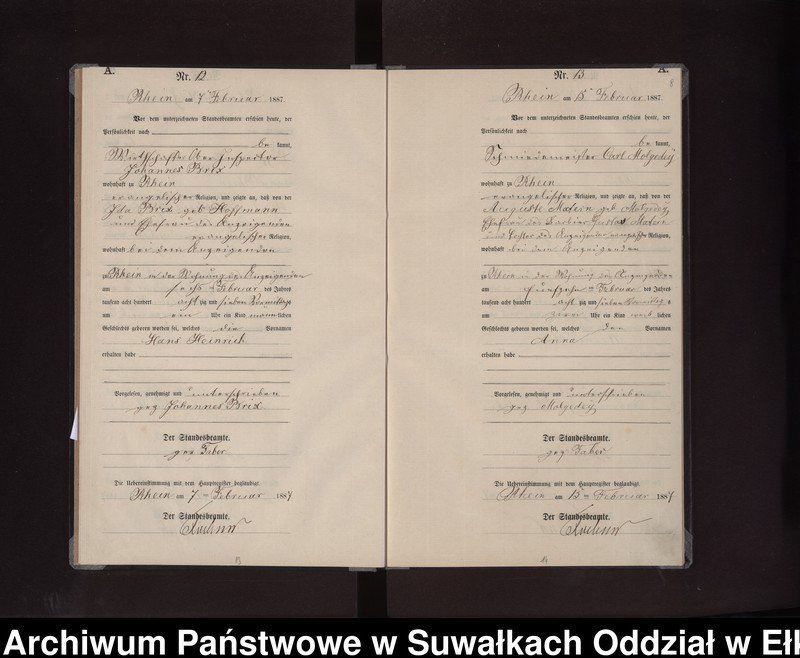 A.
Nr. 12.
Rhein am 7ten Februar 1887.
Vor dem unterzeichneten Standesbeamten erschien heute, der
Persönlichkeit nach
be kannt,
Johannes Brix
wohnhaft zu Rhein
evangelischer Religion, und zeigte an, daß von der
Ida Brix geb Hoffmann
Ehefrau des Anzeigenden
evangelischer Religion,
wohnhaft bei dem Anzeigenden
zu Rhein in der Wohnung des Anzeigenden
am sechsten Februar des Jahres
tausend acht hundert achtzig und sieben Vormittags
um ein Uhr ein Kind männlichen
Geschlechts geboren worden sei, welches die Vornamen
Hans Heinrich
erhalten habe
Vorgelesen, genehmigt und unterschrieben
gez Johannes Brix.
Der Standesbeamte.
gez Faber.
Die Uebereinstimmung mit dem Hauptregister beglaubigt.
Rhein am 7ten Februar 1887
Der Standesbeamte.
A.
8
Nr. 13.
Rhein am 15ten Februar 1887.
Vor dem unterzeichneten Standesbeamten erschien heute, der
Persönlichkeit nach
be kannt,
Schmiedemeister Carl Molgedey
wohnhaft zu Rhein
evangelischer Religion, und zeigte an, daß von der
Auguste Matern geb Molgedey,
Ehefrau des Gustav Matern
und Tochter des Anzeigenden Religion,
wohnhaft bei dem Anzeigenden
zu Rhein in der Wohnung des Anzeigenden
am fünfzehnten Februar des Jahres
tausend acht hundert achtzig und sieben Vormittags
um Uhr ein Kind weiblichen
Geschlechts geboren worden sei, welches den Vornamen
Anna
erhalten habe
Vorgelesen, genehmigt und unterschrieben
gez Molgedey,
Der Standesbeamte.
gez Faber
Die Uebereinstimmung mit dem Hauptregister beglaubigt.
Rhein am 15ten Februar 1887
Der Standesbeamte.
Archiwum Państwowe w Suwałkach Oddział w Ełk